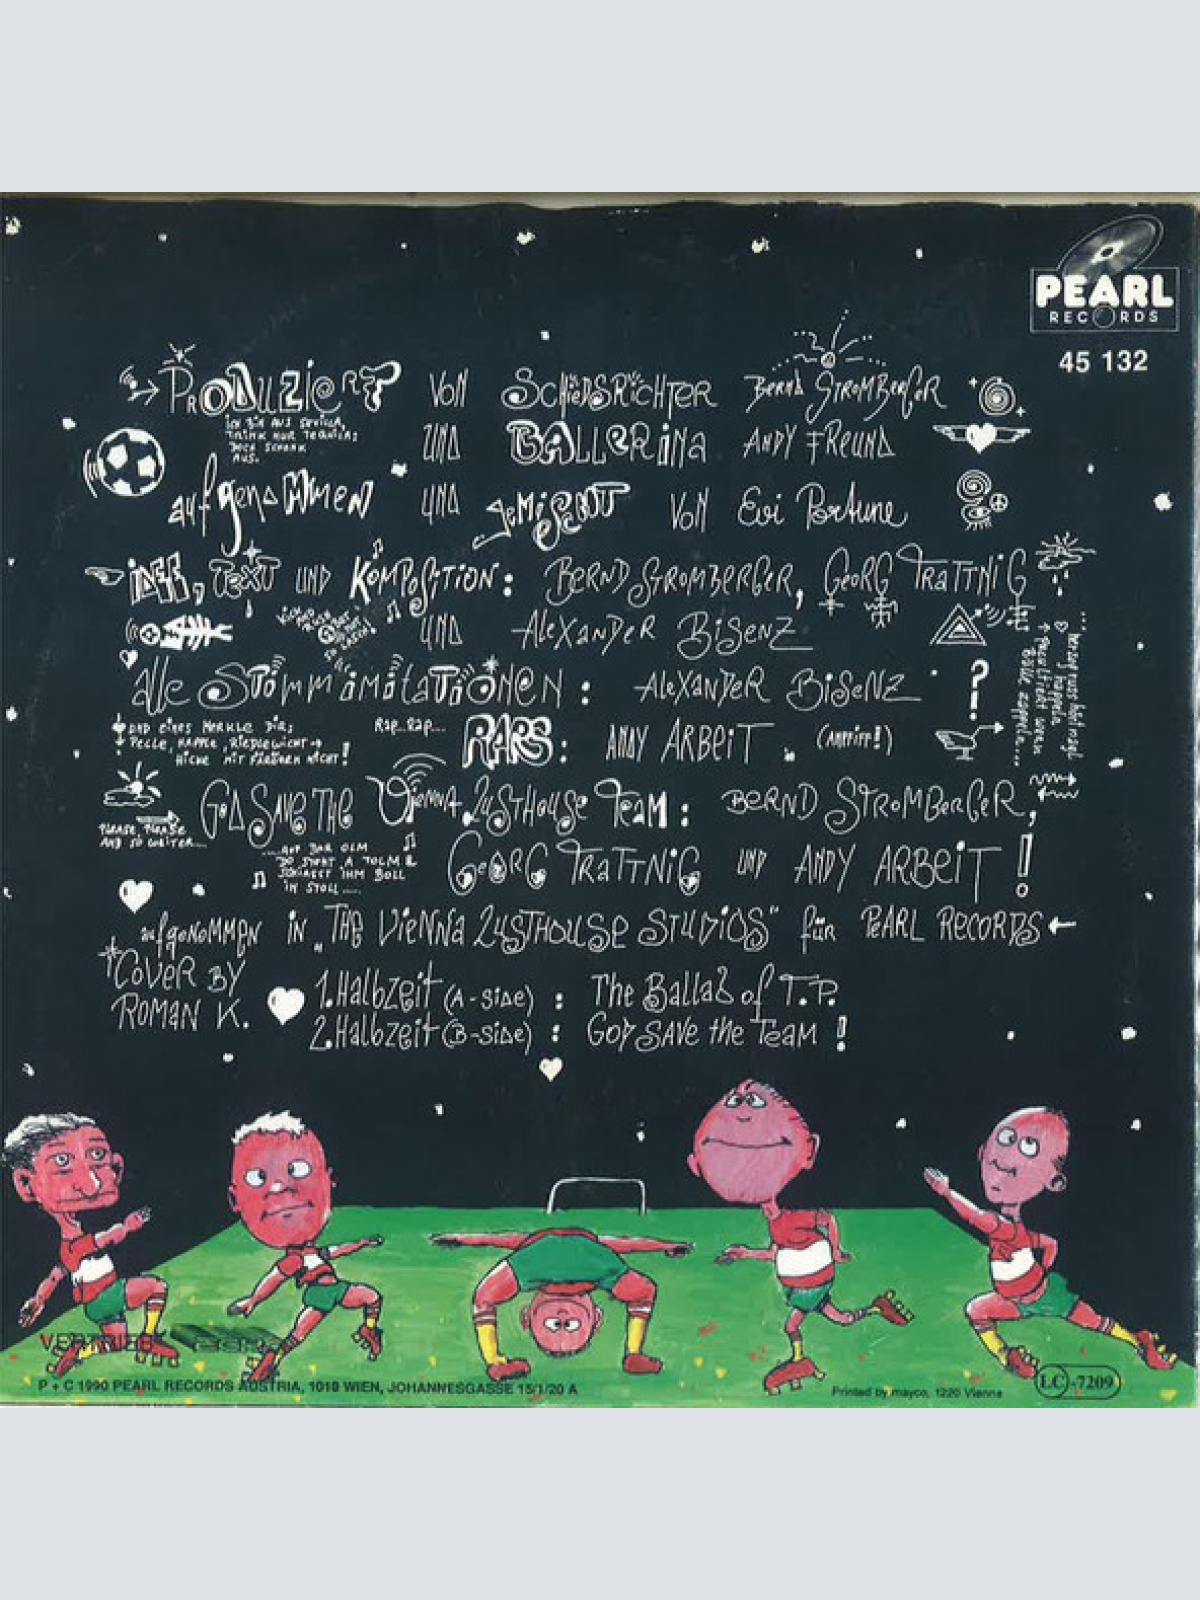 PEARL
RECORDS
45 132
PRODUZIERT VON SCHIEDSRICHTER BERND STROMBERGER
ICH BIN AUS SEVILLA,
TRINK NUR TEQUILA;
DOCH SCHENK
AUS.
UND BALLERINA ANDY FREUND
aufgenOMMEN UND geMiSCHT VON Evi Portune
iDEE, TEXT UND KOMPOSITION: BERND STROMBERGER, GeORG TRATTNIG
UND ALEXANDER BISENZ
alle Stimmimitationen: ALEXANDER BISENZ
UND EINES MERKLE DIR;
PELLE, HAPPEL, RIEDLEWICHT →
HICKE MIT FÄRBHEN NICHT!
Rap..Rap....
RAPS: ANDY ARBEIT. (ANPFIFF!)
GOD SAVE THE Vienna LUSTHOUSE TEAM: BERND STROMBERGER,
PLEASE, PLEASE
AND SO WEITER...
GEORG TRATTNIG UND ANDY ARBEIT!
....AUF DAR OLM
DO STEHT A TOLM &
SCHIASST IHM BOLL
IN STOLL ....
aufgeNOMMEN IN „THE VIENNA LUSTHOUSE STUDIOS“ für PEARL RECORDS ←
COVER BY
ROMAN K.
1.Halbzeit (A-SIDE): The Ballad of T.P.
2.Halbzeit (B-SIDE): GOD SAVE the Team!
VERTRIEB:
P + C 1990 PEARL RECORDS AUSTRIA, 1010 WIEN, JOHANNESGASSE 15/1/20 A
Printed by mayco, 1220 Vienna
LC-7209